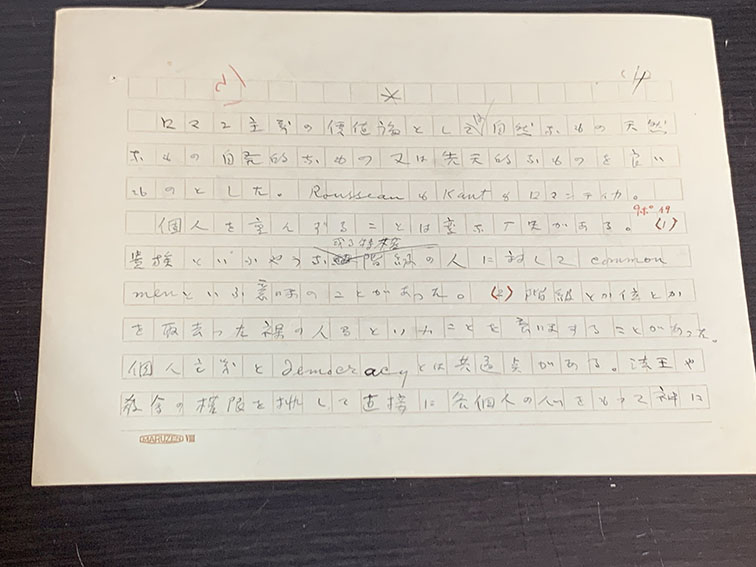 *
ロマン主義の価値論としては自然なもの天然
なもの自発的なもの又は先天的なものを良い
ものとした。RousseauもKantもロマンチィク。
個人を重んずることは二点がある。(1)
9ポ 19
或る特殊
貴族といふやうな階級の人に対してcommon
menといふ意味のことがあった。(2)階級とか位とか
を取去った裸の人るといふことを意味することがあった。
個人主義とdemocracyとは共通点がある。法王や
教会の権限を排して直接に各個人の心をもって神に
MARUZEN VIII